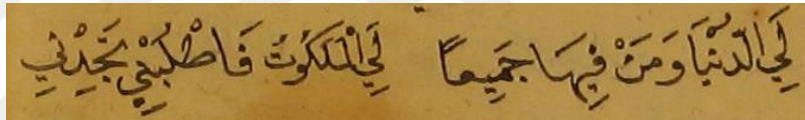 لَيَ الدُّنْيَا وَمَنْ فِيهَا جَمِيعًا لَيَ الْمَلَكُوتُ فَاطْلُبْنِي تَجِدْنِي